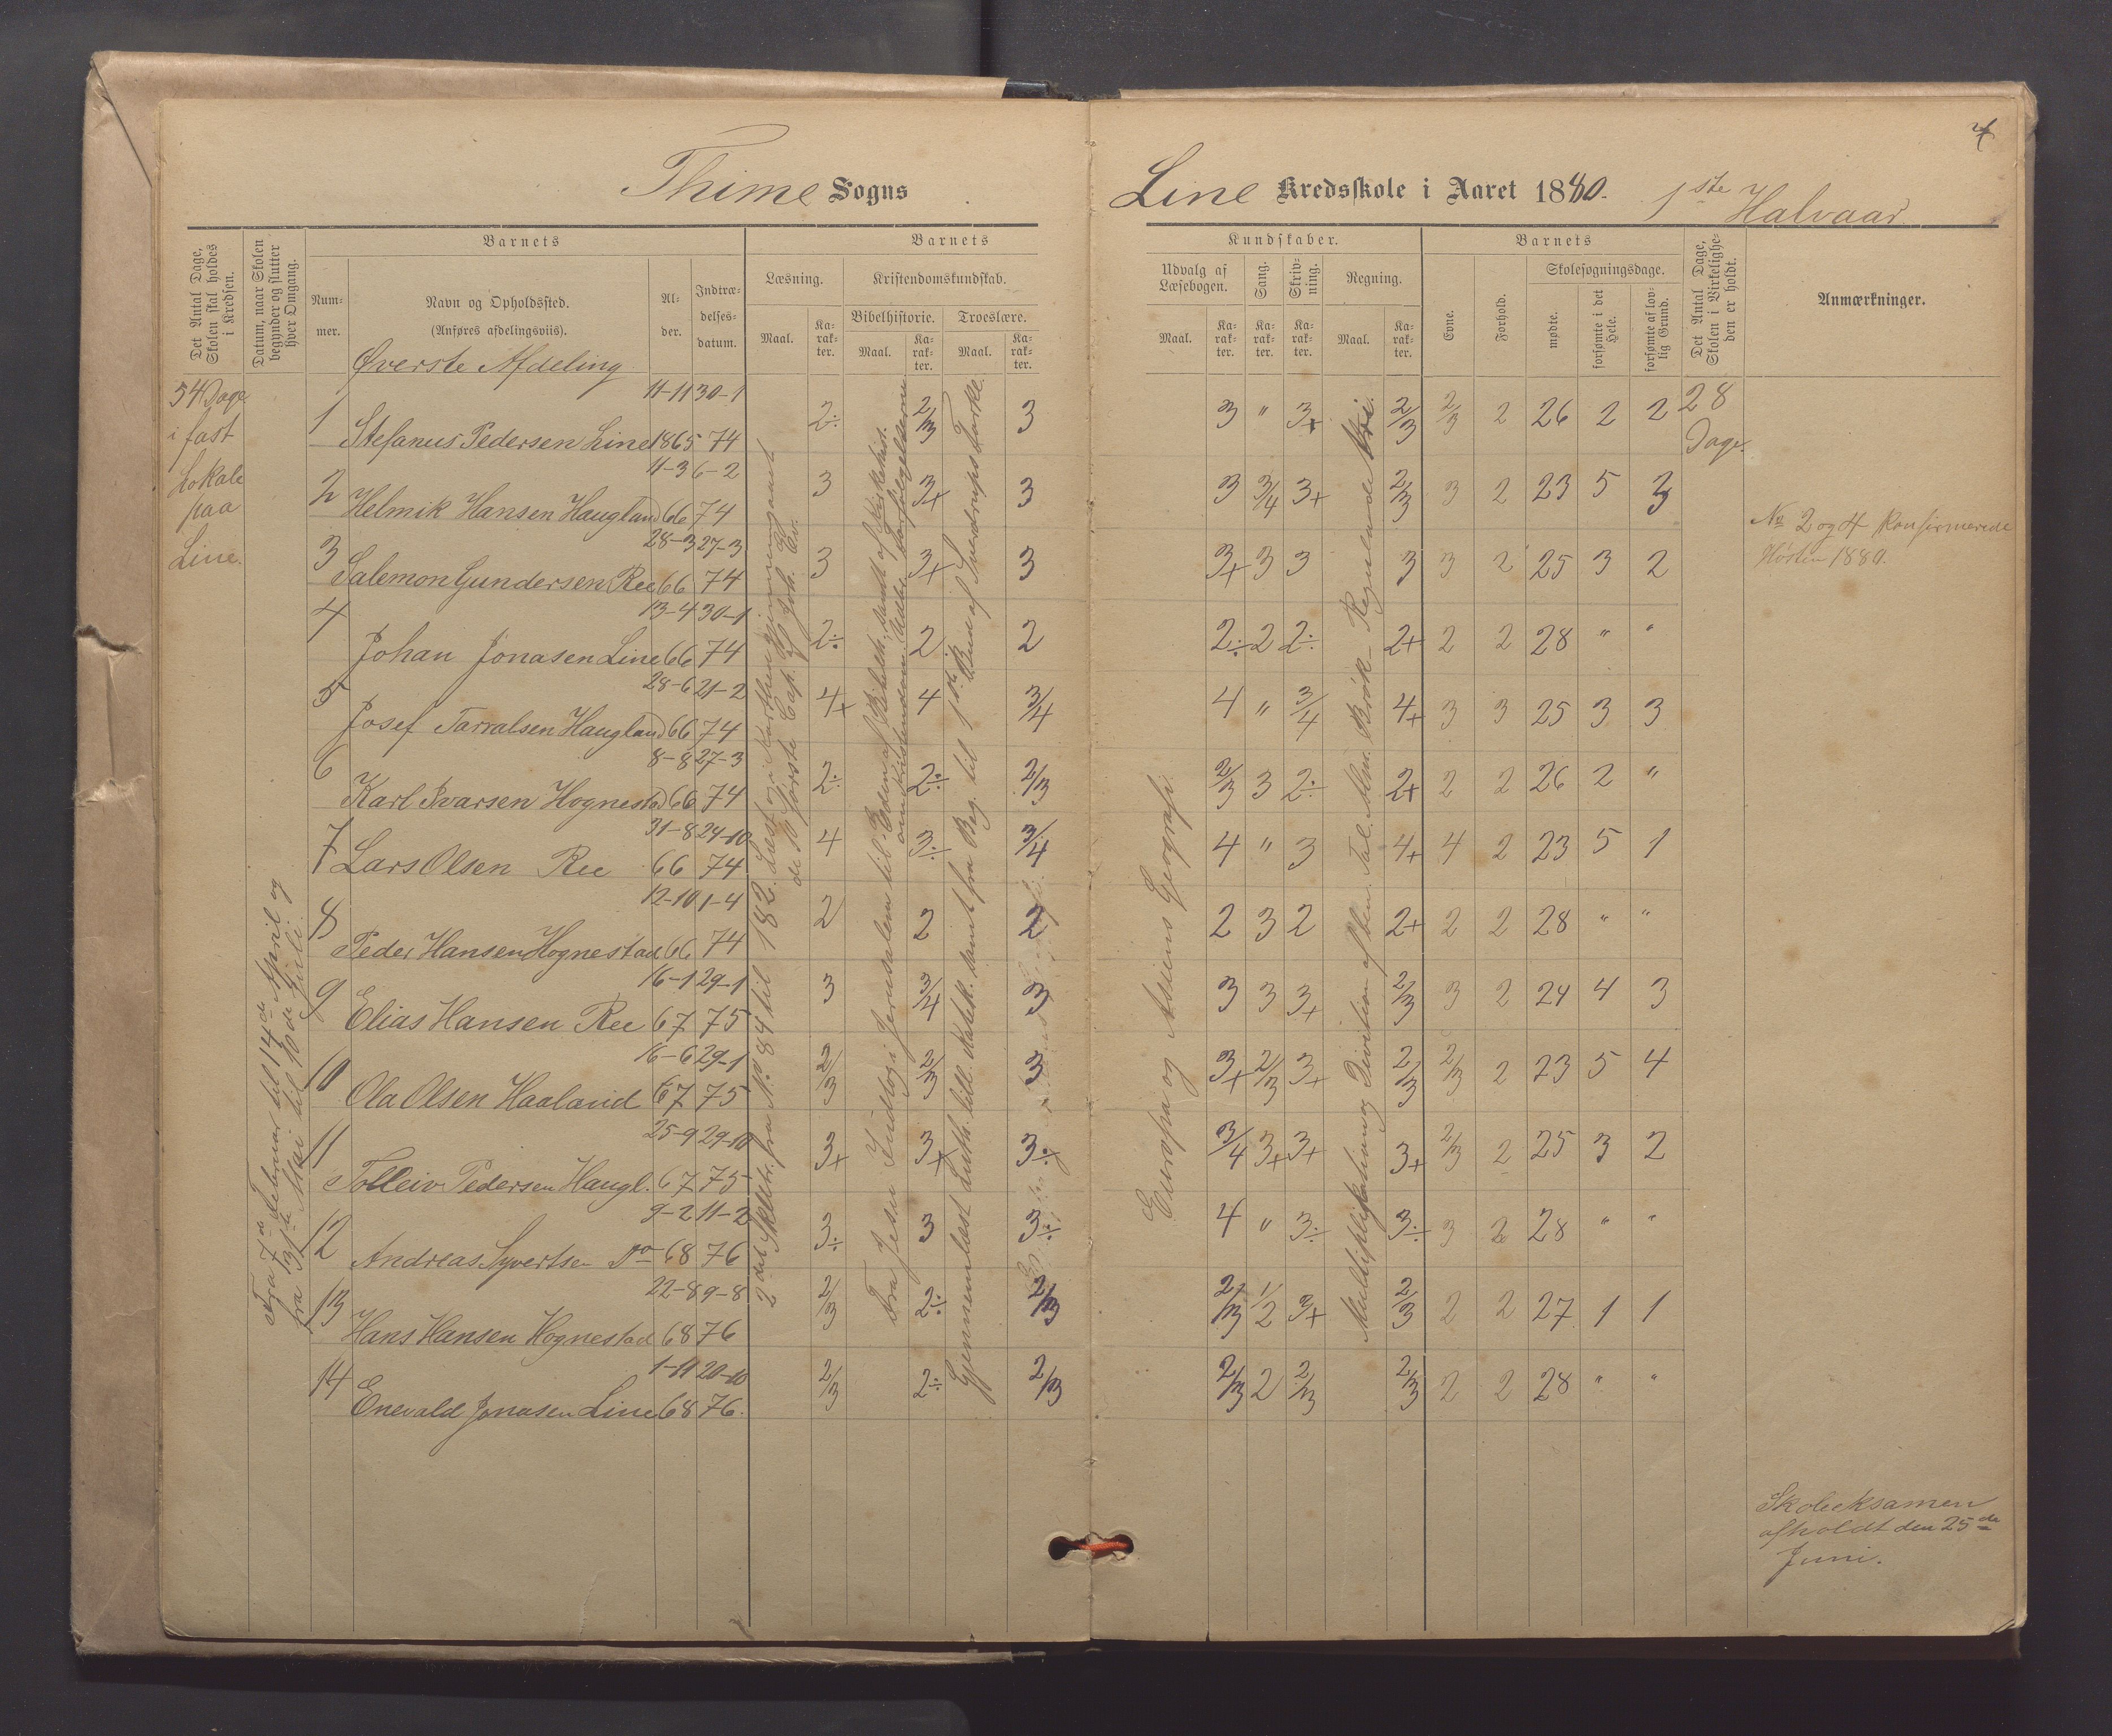 4
Thime Sogns
Line Kredsskole i Aaret 1880. 1ste Halvaar
Det Antal Dage, Skolen skal holdes i Kredsen.
Datum, naar Skolen begynder og slutter hver Omgang.
Barnets
Nummer.
Navn og Opholdssted.
(Anføres afdelingsviis).
Alder.
Indtrædelsesdatum.
Barnets
Læsning.
Maal.
Karakter.
Kristendomskundskab.
Bibelhistorie.
Maal.
Karakter.
Troeslære.
Maal.
Karakter.
Kundskaber.
Udvalg af Læsebogen.
Maal.
Karakter.
Sang.
Karakter.
Skrivning.
Karakter.
Regning.
Maal.
Karakter.
Barnets
Evne.
Forhold.
Skolesøgningsdage.
mødte.
forsømte i det Hele.
forsømte af lovlig Grund.
Det Antal Dage, Skolen i Virkeligheden er holdt.
Anmærkninger.
Øverste Afdeling
54 Dage
i fast
Lokale
paa
Line.
Fra 7de Februar til 14de April og
fra 31te Mai til 10de Juli.
1 Stefanus Pedersen Line 11-11 1865 30-1 74 2÷ 2/3 3 3 " 3+ 2/3 2/3 2 26 2 2 28 Dage.
2 Helmik Hansen Haugland 11-3 66 6-2 74 3 3+ 3 3 3/4 3+ 2/3 3 2 23 5 3
3 Salemon Gundersen Ree 28-3 66 27-3 74 3 3+ 3 3+ 3 3 3 3 2 25 3 2
4 Johan Jonasen Line 13-4 66 30-1 74 2÷ 2 2 2÷ 2 2÷ 2+ 2 2 28 " "
5 Josef Tarralsen Haugland 28-6 66 21-2 74 4+ 4 3/4 4 " 3/4 4+ 3 3 25 3 3
6 Karl Ivarsen Hognestad 8-8 66 27-3 74 2÷ 2÷ 2/3 2/3 3 2÷ 2+ 2 2 26 2 "
7 Lars Olsen Ree 31-8 66 24-10 74 4 3÷ 3/4 4 " 3 4+ 4 2 23 5 1
8 Peder Hansen Hognestad 12-10 66 1-4 74 2 2 2 2 3 2 2+ 2 2 28 " "
9 Elias Hansen Ree 16-1 67 29-1 75 3 3/4 3 3 3 3+ 2/3 3 2 24 4 3
10 Ola Olsen Haaland 16-6 67 29-1 75 2/3 2/3 3 3+ 2/3 3+ 2/3 2/3 2 23 5 4
11 Tolleiv Pedersen Haugl. 25-9 67 29-10 75 3+ 3+ 3÷ 3/4 3+ 3+ 3+ 2/3 2 25 3 2
12 Andreas Syvertsen Do 9-2 68 11-2 76 3÷ 3 3÷ 4 " 3÷ 3÷ 3 2 28 " "
13 Hans Hansen Hognestad 22-8 68 9-8 76 2/3 2÷ 2/3 2/3 1/2 3+ 2/3 2 2 27 1 1
14 Enevald Jonasen Line 1-11 68 20-10 76. 2/3 2÷ 2/3 2/3 2 2/3 2/3 2 2 28 " "
2det Skoletr. fra No. 84 til 182. Læst
de 10 første Cap. af Joh. Ev.
Fra Jesu Indtog i Jerusalem til Enden af Bibelh. samt af Kirkehist.
om Kristendommens
Gjennemlæst Luth. lill. Katek. samt fra Beg. til 1ste Bud af Sverdrups Forkl.
Europa og Asiens Geografi.
Multiplikation og Division af ben. Tal. Alm. Brøk - Regulaude tri.
No 2 og 4 konfirmerede
Høsten 1880.
Skoleeksamen
afholdt den 25de
Juni.